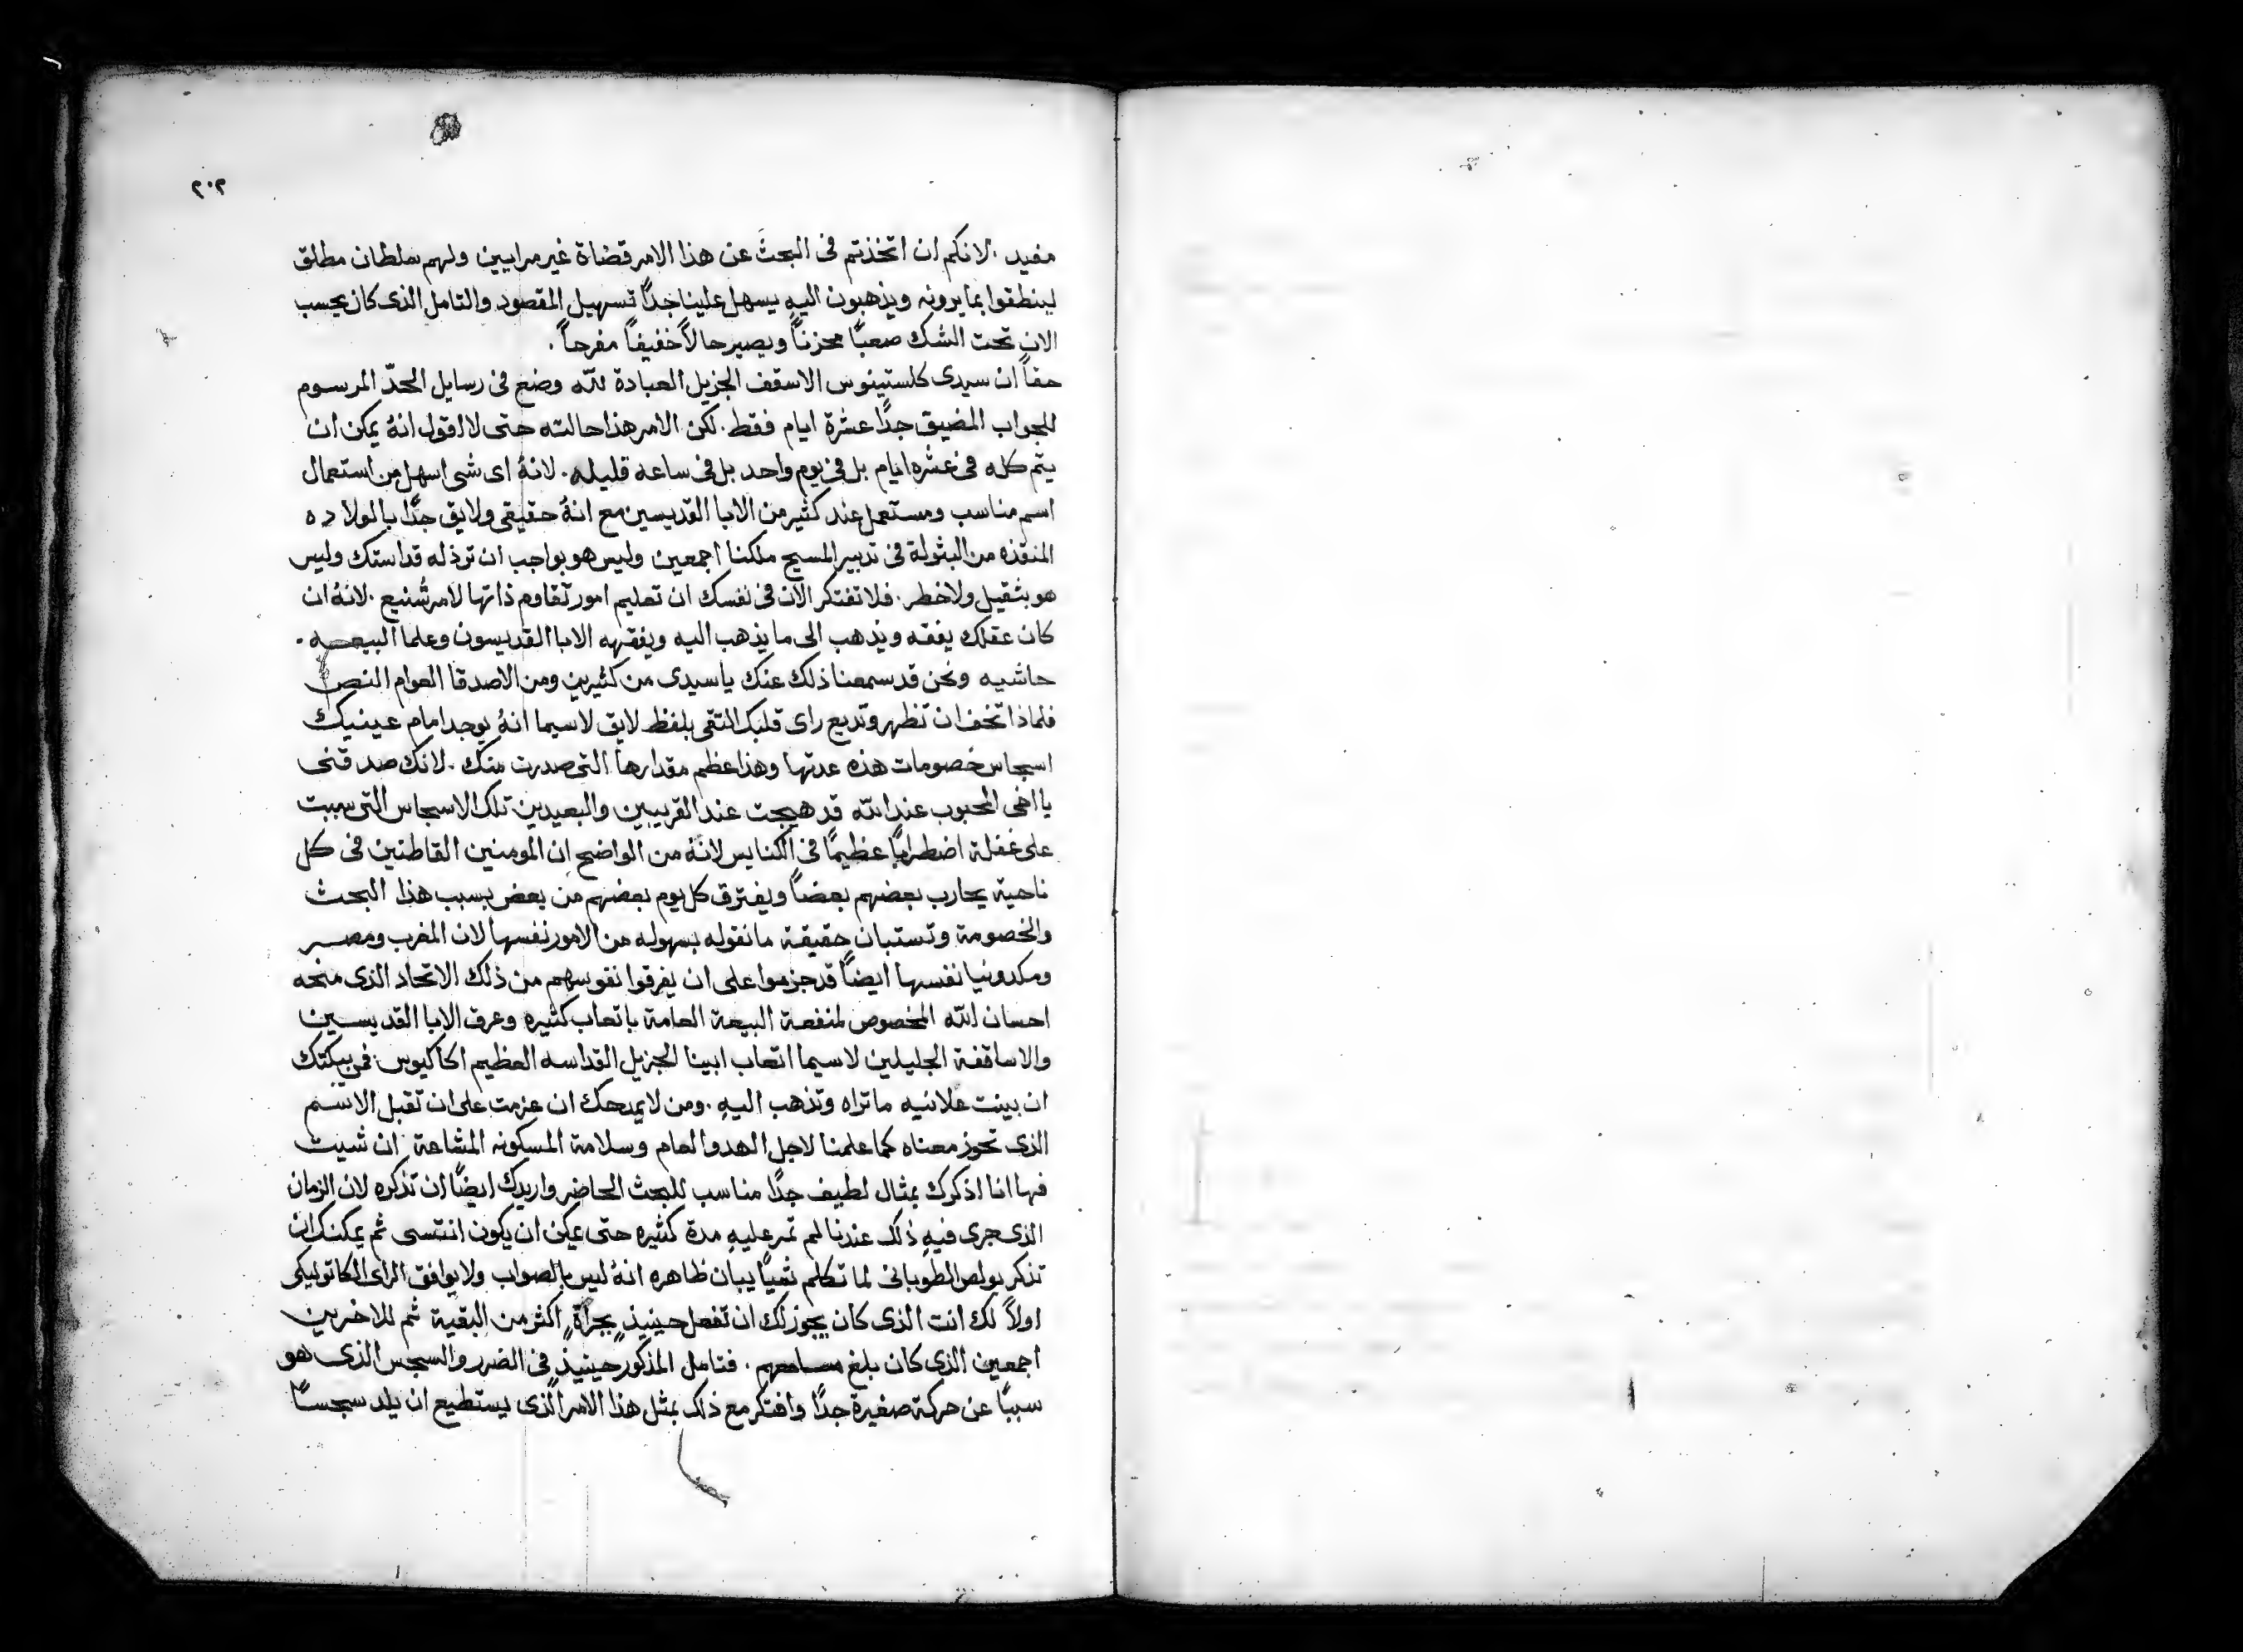 ٢٠٢
مفيد . لانكم ان اتخذتم فى البحث عن هذا الامر قضاة غير مرايين ولهم سلطان مطلق
لينطقوا بما يرونه ويذهبون اليهِ يسهل علينا جدًا تسهيل المقصود والتامل الذى كان يحسب
الان تحت الشك صعبًا محزنًا ويصير حالاً خفيفًا مفرحاً .
حقاً ان سيدى كلستينوس الاسقف الجزيل العبادة لله وضع فى رسايل الحدّ المرسوم
للجواب المضيق جدًا عشرة ايام فقط . لكن الامر هذا حالته حتى لا اقول انهُ يمكن ان
يتم كله فى عشره ايام بل فى يوم واحد بل فى ساعه قليله . لانهُ اى شى اسهل من استعمال
اسم مناسب ومستعمل عند كثير من الابا القديسين مع انهُ حقيقى ولايق جدًا بالولاده
المنقذه من البتولة فى تدبير المسيح ملكنا اجمعين وليس هو بواجب ان ترذله قداستك وليس
هو بثقيل ولا خطر . فلا تفتكر الان فى نفسك ان تعليم امور تقاوم ذاتها لامر شنيع . لانهُ ان
كان عقلك يفقه ويذهب الى ما يذهب اليه ويفقهه الابا القديسون وعلما البيعه .
حاشيه ونحن قد سمعنا ذلك عنك ياسيدى من كثيرين ومن الاصدقا العوام النص
فلماذا تخف ان تظهر وتديع راى قلبك التقى بلفظ لايق لاسيما انهُ يوجد امام عينيك
اسجاس خصومات هذه عدتها وهذا عظم مقدارها التى صدرت منك . لانك صدقنى
يااخى المحبوب عند الله قد هيجت عند القريبين والبعيدين تلك الاسجاس التى سببت
على غفلة اضطرابًا عظيمًا فى الكنايس لانهُ من الواضح ان المومنين القاطنين فى كل
ناحية يحارب بعضهم بعضاً ويفترق كل يوم بعضهم من بعض بسبب هذا البحث
والخصومة وتستبان حقيقة ما نقوله بسهوله من الامور نفسها لان المغرب ومصر
ومكدونيا نفسها ايضاً قد جزموا على ان يفرقوا نفوسهم من ذلك الاتحاد الذى منحه
احسان الله المخصوص لمنفعة البيعة العامة باتعاب كثيره وعرق الابا القديسين
والاساقفة الجليلين لاسيما اتعاب ابينا الجزيل القداسه العظيم اكاكيوس فمن يبكتك
ان بينت علانيه ما تراه وتذهب اليهِ . ومن لا يمدحك ان عزمت على ان تقبل الاسم
الذى تحوز معناه كما علمنا لاجل الهدو العام وسلامة المسكونه المشاعة ان شيت
فها انا اذكرك بمثال لطيف جدًا مناسب للبحث الحاضر واريدك ايضًا ان تذكره لان الزمان
الذى جرى فيهِ ذلك عندنا لم تمر عليهِ مدة كثيره حتى يمكن ان يكون انتسى ثم يمكنك ان
تذكر بولص الطوبانى لما تكلم شيًا يبان ظاهره انهُ ليس بالصواب ولا يوافق الراى الكاتوليكى
اولاً لك انت الذى كان يجوز لك ان تفعل حينيذٍ بجراةٍ اكثر من البقية ثم للاخرين
اجمعين الذى كان بلغ مسامعهم . فتامل المذكور حينيذٍ فى الضرر والسجس الذى هو
سببًا عن حركة صغيرة جدًا وافتكر مع ذلك بمثل هذا الامر الذى يستطيع ان يلد سجسًا